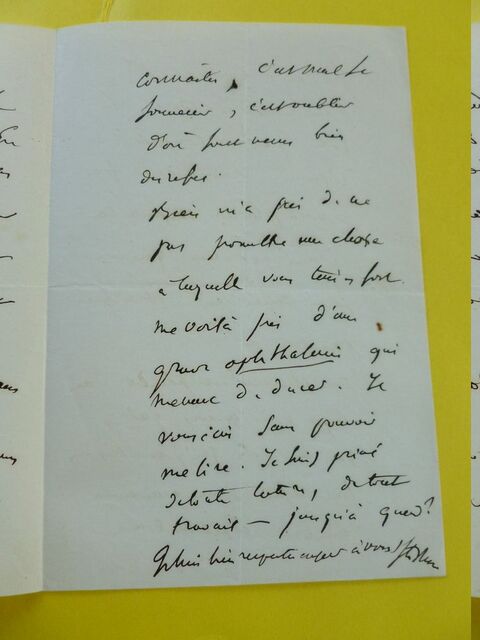 connaître, c'est mal se
souvenir, c'est oublier
d'où sont venus bien
des refus.
Bien m'a pris de ne
pas promettre une chose
à laquelle vous teniez fort.
me voilà pris d'une
grave ophthalmie qui
menace de durer. Je
vous écris sans pouvoir
me lire. Je suis privé
de toute lecture, de tout
travail — jusqu'à quand?
à vous